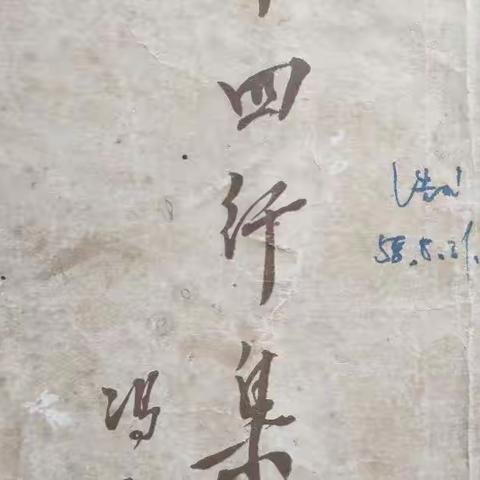 四行集
冯
58.8.21.